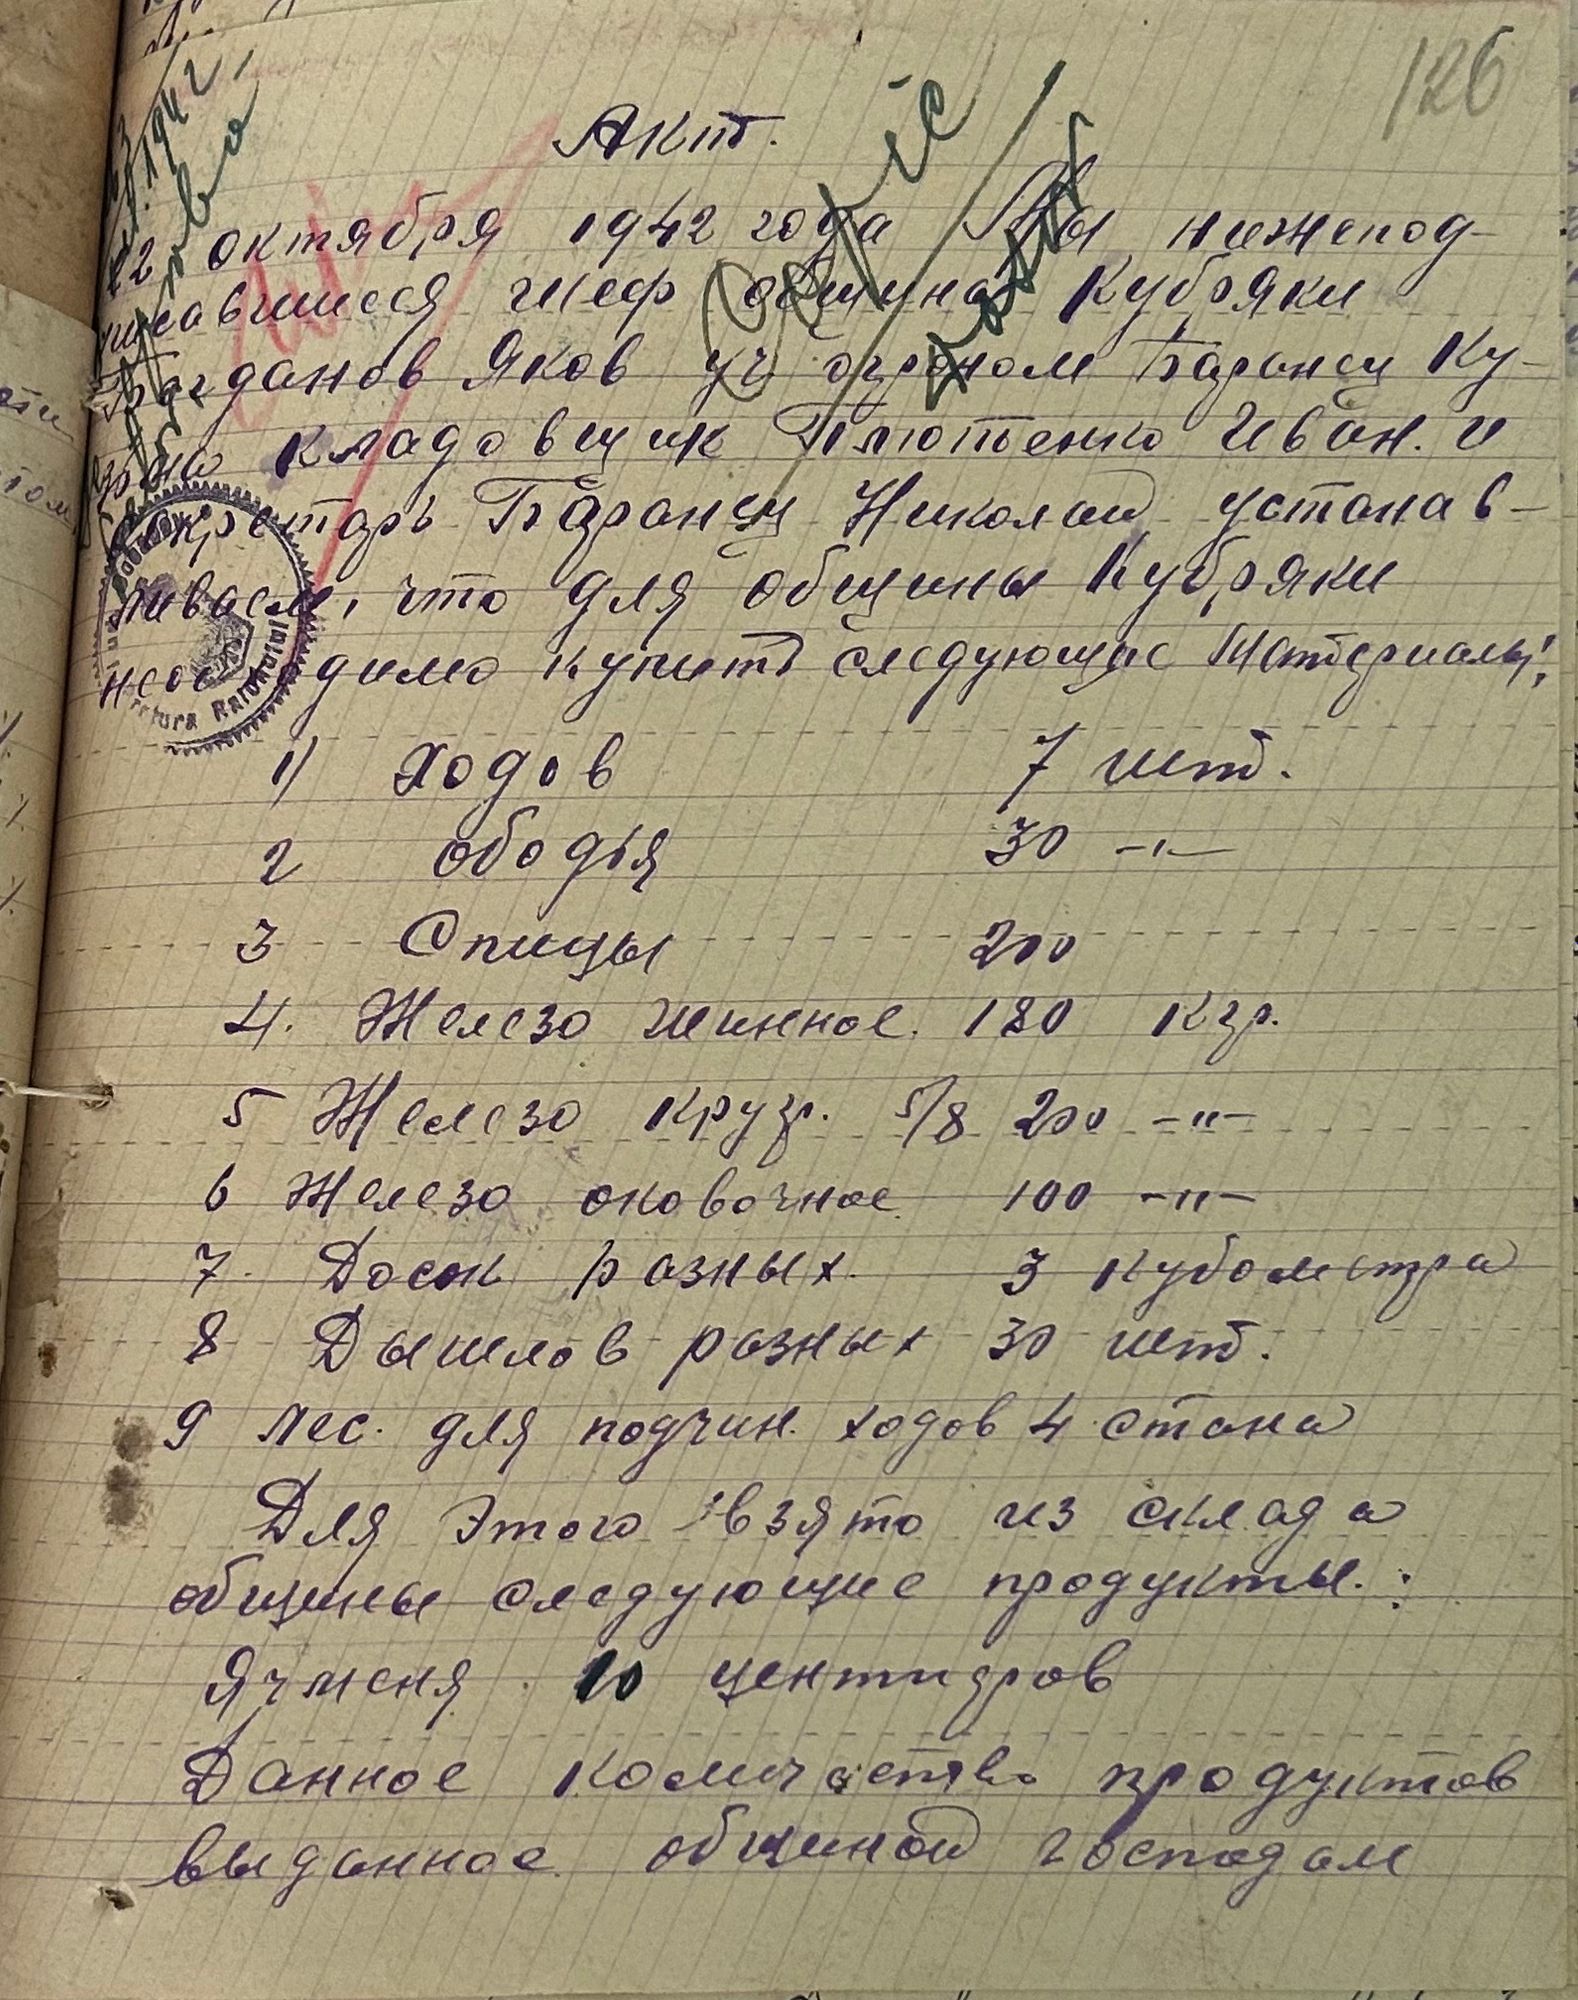 126
Акт.
22 октября 1942 года Мы нижепод-
писавшиеся шеф общины Кубряки
Богданов Яков уч огроном Баранец Ку-
кладовщик Плютенко Иван. и
секретарь Баранец Николай устанав-
ливаем, что для общины Кубряки
необходимо купить следующие материалы:
1) Ходов 7 шт.
2 ободья 30 -"-
3 Спицы 200
4. Железо шинное. 180 кгр.
5 Железо кругл. 5/8 200 -"-
6 Железо оковочное 100 -"-
7. Досок разных. 3 кубометра
8 Дышлов разных 30 шт.
9 лес. для подчин. ходов 4 стана
Для этого взято из склада
общины следующие продукты.:
Ячменя 10 центнеров
Данное количество продуктов
выданное общиной господам